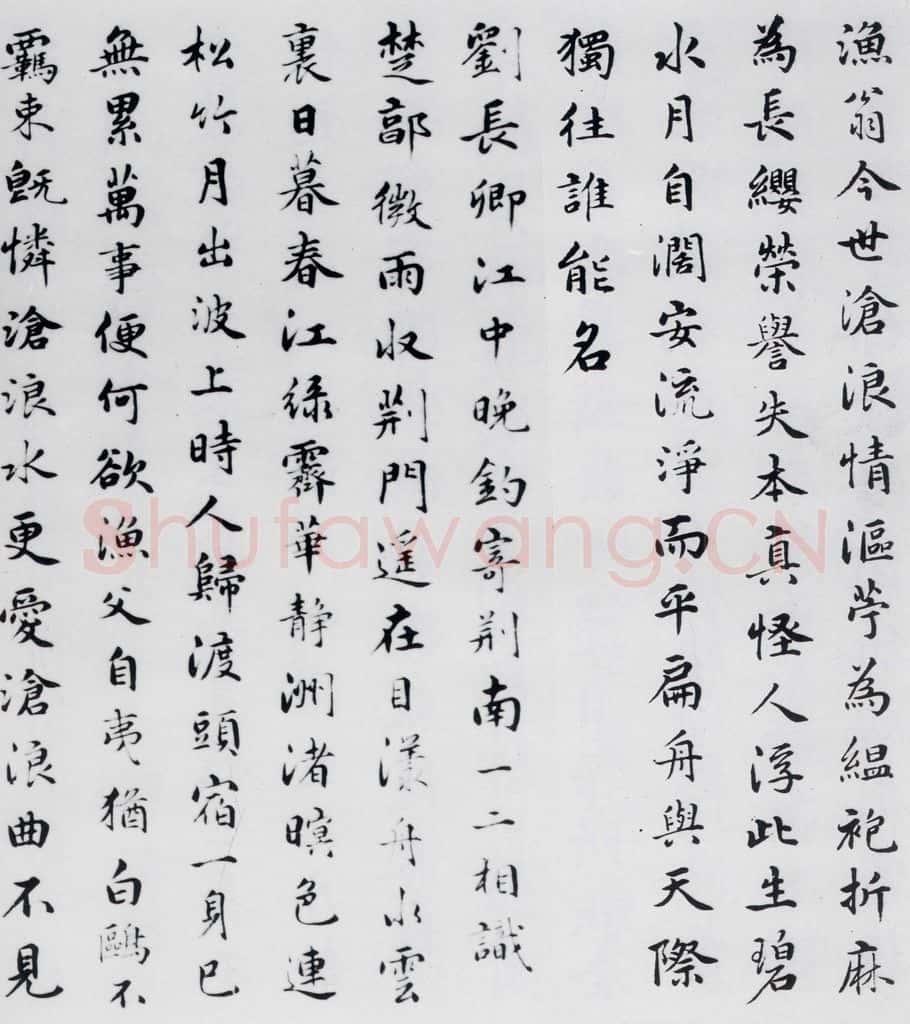 漁翁今世滄浪情漚苧為縕袍折麻
為長纓榮譽失本真怪人浮此生碧
水月自濶安流淨而平扁舟與天際
獨往誰能名
劉長卿江中晚釣寄荆南一二相識
楚郢微雨收荆門遥在目漾舟水雲
裏日暮春江綠霽華静洲渚暝色連
松竹月出波上時人歸渡頭宿一身已
無累萬事便何欲漁父自夷猶白鷗不
羈束既憐滄浪水更愛滄浪曲不見
Shufawang.CN